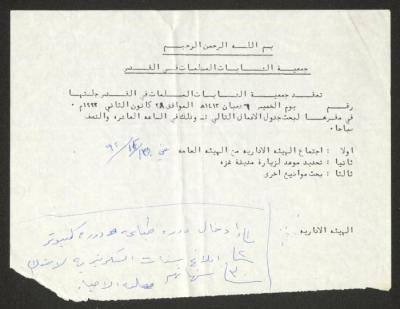 بسم الله الرحمن الرحيم
جمعية الشابات المسلمات في القدس
تعقد جمعية الشابات المسلمات في القدس جلستها
رقم يوم الخميس ٦ شعبان ١٤١٣هـ الموافق ٢٨ كانون الثاني ١٩٩٣م
في مقرها لبحث جدول الاعمال التالي :ـ وذلك في الساعة العاشرة والنصف
صباحا.
اولا : اجتماع الهيئه الاداريه مع الهيئه العامه
ثانيا : تحديد موعد لزيارة مدينة غزه
ثالثا : بحث مواضيع اخرى
الهيئه الاداريه
١ ادخال دورة طباعه ودورة كمبيوتر
٢ ابلاغ
٣